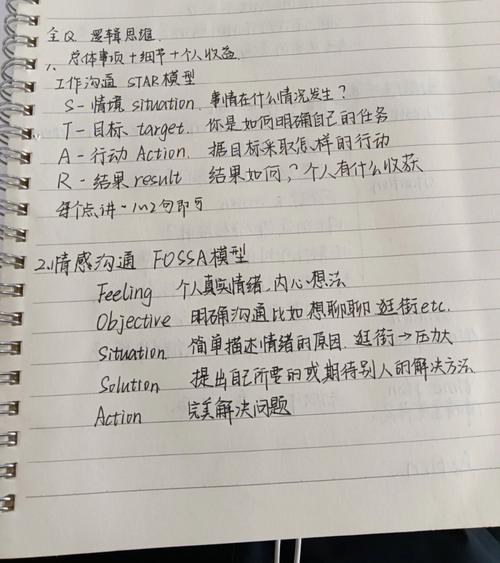 全Q 逻辑思维.
1. 总体事项+细节+个人收益
工作沟通 STAR模型
S-情境 situation. 事情在什么情况发生?
T-目标 target. 你是如何明确自己的任务
A-行动 Action. 据目标采取怎样的行动
R-结果 result 结果如何,?个人有什么收获
每个点讲1~2句即可
2.情感沟通 FOSSA模型
Feeling 个人真实情绪.内心想法
Objective 明确沟通比如想聊聊 逛街etc.
Situation 简单描述情绪的原因. 逛街→压力大
Solution 提出自己所要的或期待别人的解决方法.
Action 完美解决问题